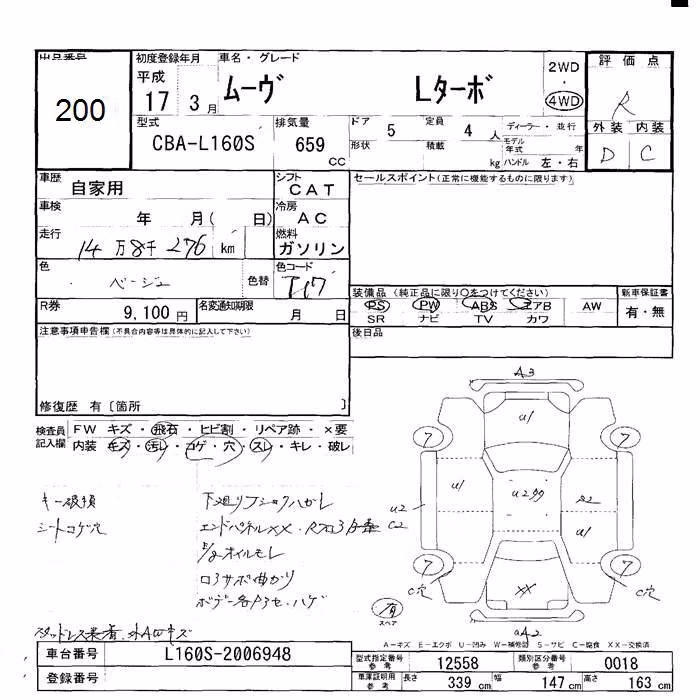 出品番号
200
初度登録年月
平成
17 3月
車名・グレード
ムーヴ Lターボ
2WD
・
4WD
評価点
R
型式
CBA-L160S
排気量
659
cc
ドア
5
定員
4 人
ディーラー・並行
形状
積載
kg
モデル年式 年
ハンドル 左・右
外装 内装
D C
車歴
自家用
シフト
CAT
セールスポイント(正常に機能するものに限ります)
車検
年 月( 日)
冷房
AC
走行
14万8千276 km
燃料
ガソリン
色
ベージュ
色替
色コード
T17
R券
9,100円
名変通知期限
月 日
装備品 (純正品に限り○をつけてください)
PS PW ABS エアB AW
SR ナビ TV カワ
新車保証書
有・無
注意事項申告欄(不具合内容等は具体的に記入して下さい)
後日品
修復歴 有〔箇所 〕
検査員記入欄
FW キズ・飛石・ヒビ割・リペア跡・×要
内装 キズ・汚レ・コゲ・穴・スレ・キレ・破レ
キー破損
シートコゲ穴
エンドパネルXX
オイルモレ
A3
U1
7
7
U1
U2
C2
U1
7
7
C穴
C穴
XX
有
スペア
A2
A-キズ E-エクボ U-凹み W-補修跡 S-サビ C-腐食 XX-交換済
車台番号
L160S-2006948
登録番号
型式指定番号
参考
12558
類別区分番号
参考
0018
車庫証明用
参考
長さ
339 cm
幅
147 cm
高さ
163 cm